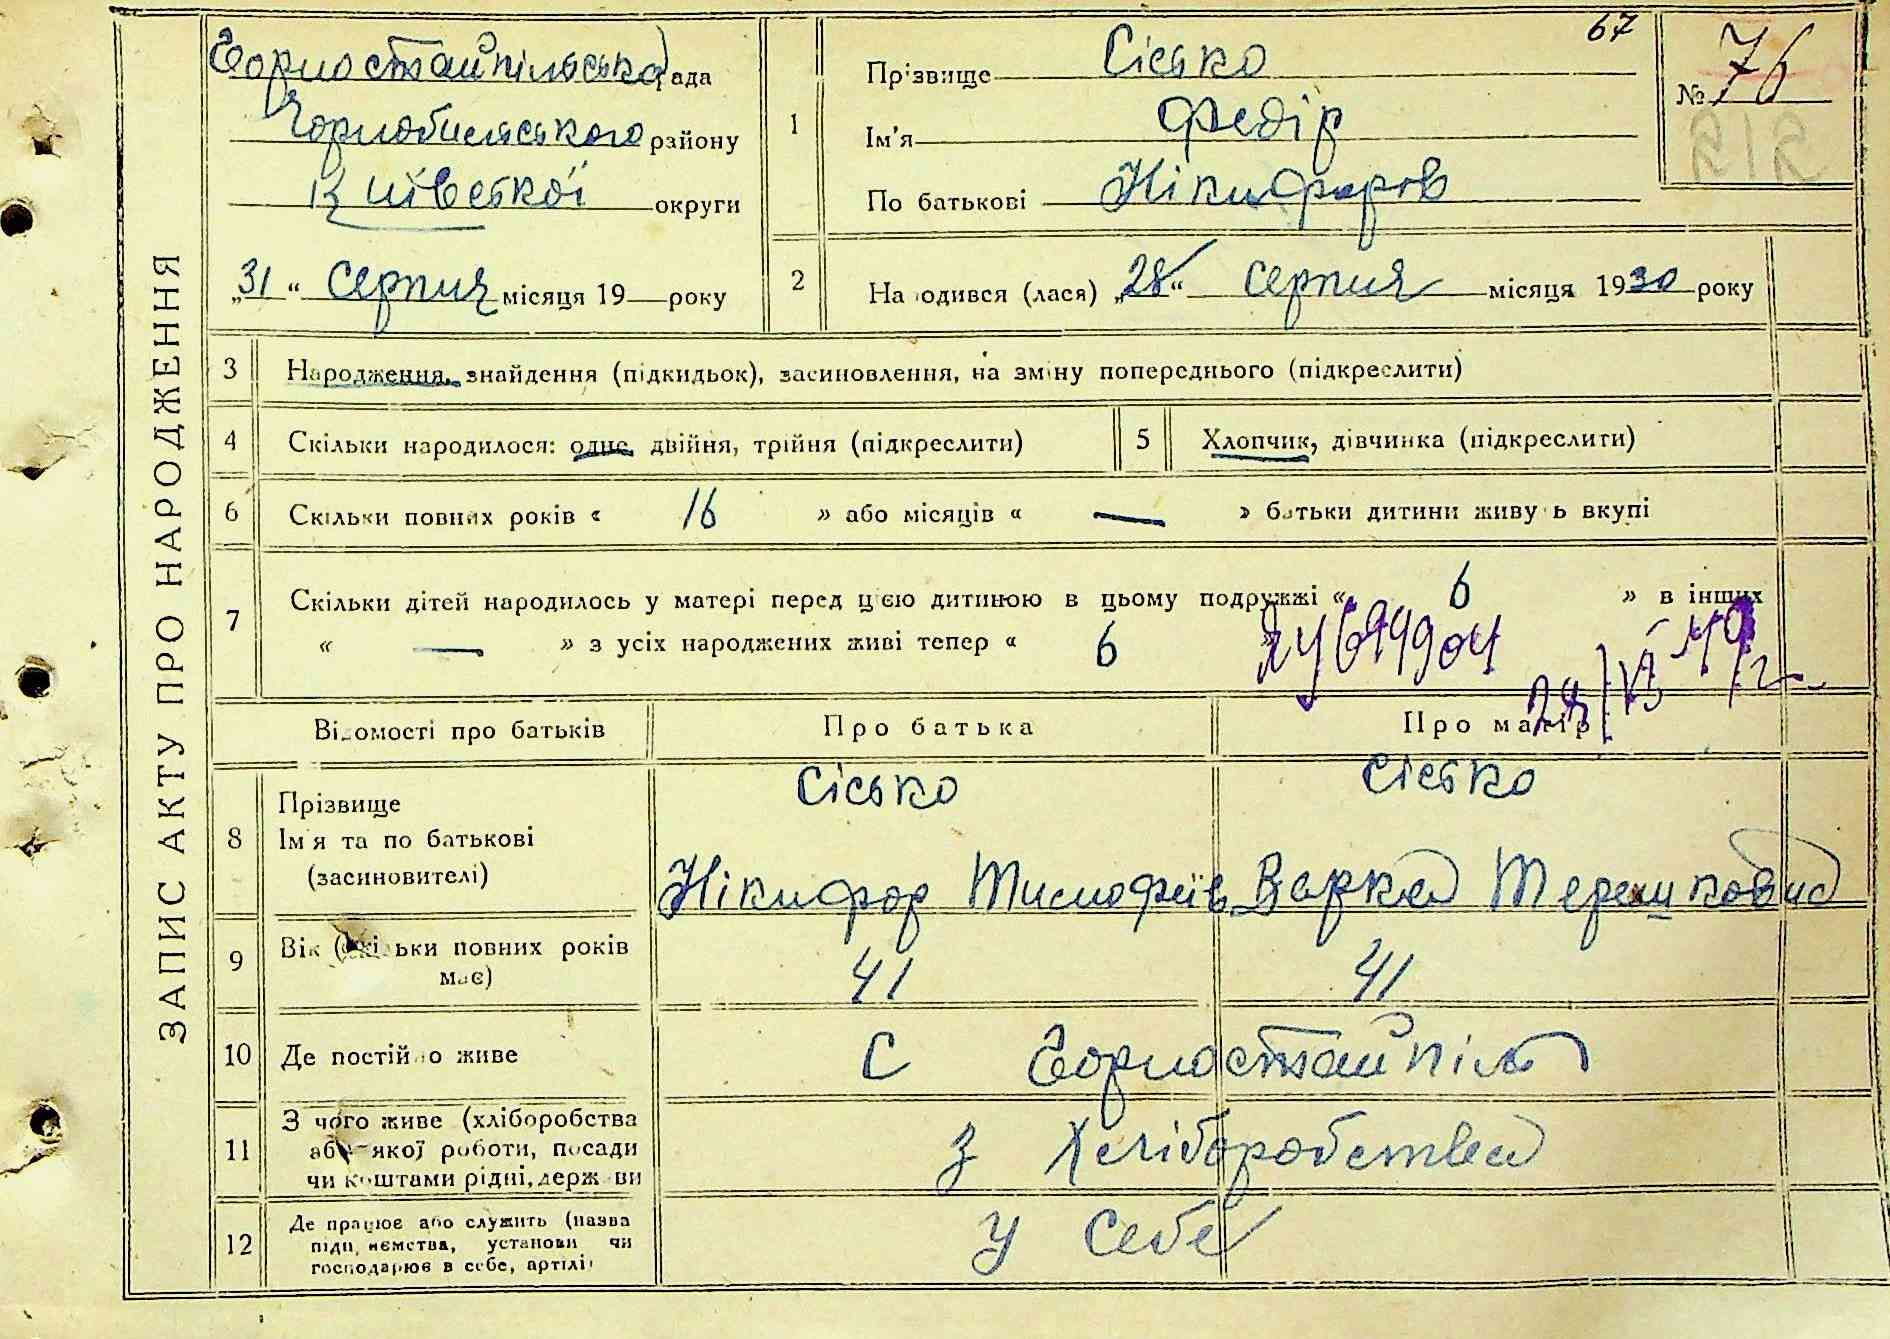 ЗАПИС АКТУ ПРО НАРОДЖЕННЯ
Горностайпільська рада
Чорнобильського району
Київської округи
„31“ Серпня місяця 19 року
67
№ 76
212
1 Прізвище Сісько
Ім'я Федір
По батькові Нікифоров
2 Народився (лася) „28“ серпня місяця 1930 року
3 Народження, знайдення (підкидьок), засиновлення, на зміну попереднього (підкреслити)
4 Скільки народилося: одне, двійня, трійня (підкреслити)
5 Хлопчик, дівчинка (підкреслити)
6 Скільки повних років « 16 » або місяців « — » батьки дитини живуть вкупі
7 Скільки дітей народилось у матері перед цією дитиною в цьому подружжі « 6 » в інших
« — » з усіх народжених живі тепер « 6
Відомості про батьків Про батька Про матір
8 Прізвище
Ім'я та по батькові
(засиновителі)
Сісько
Нікифор Тимофеїв
Сісько
Варка Терешковна
9 Вік (скільки повних років
має)
41 41
10 Де постійно живе
С Горностайпіль
11 З чого живе (хліборобства
або якої роботи, посади
чи коштами рідні, держави
з Хліборобства
12 Де працює або служить (назва
підприємства, установи чи
господарює в себе, артілі)
у себе